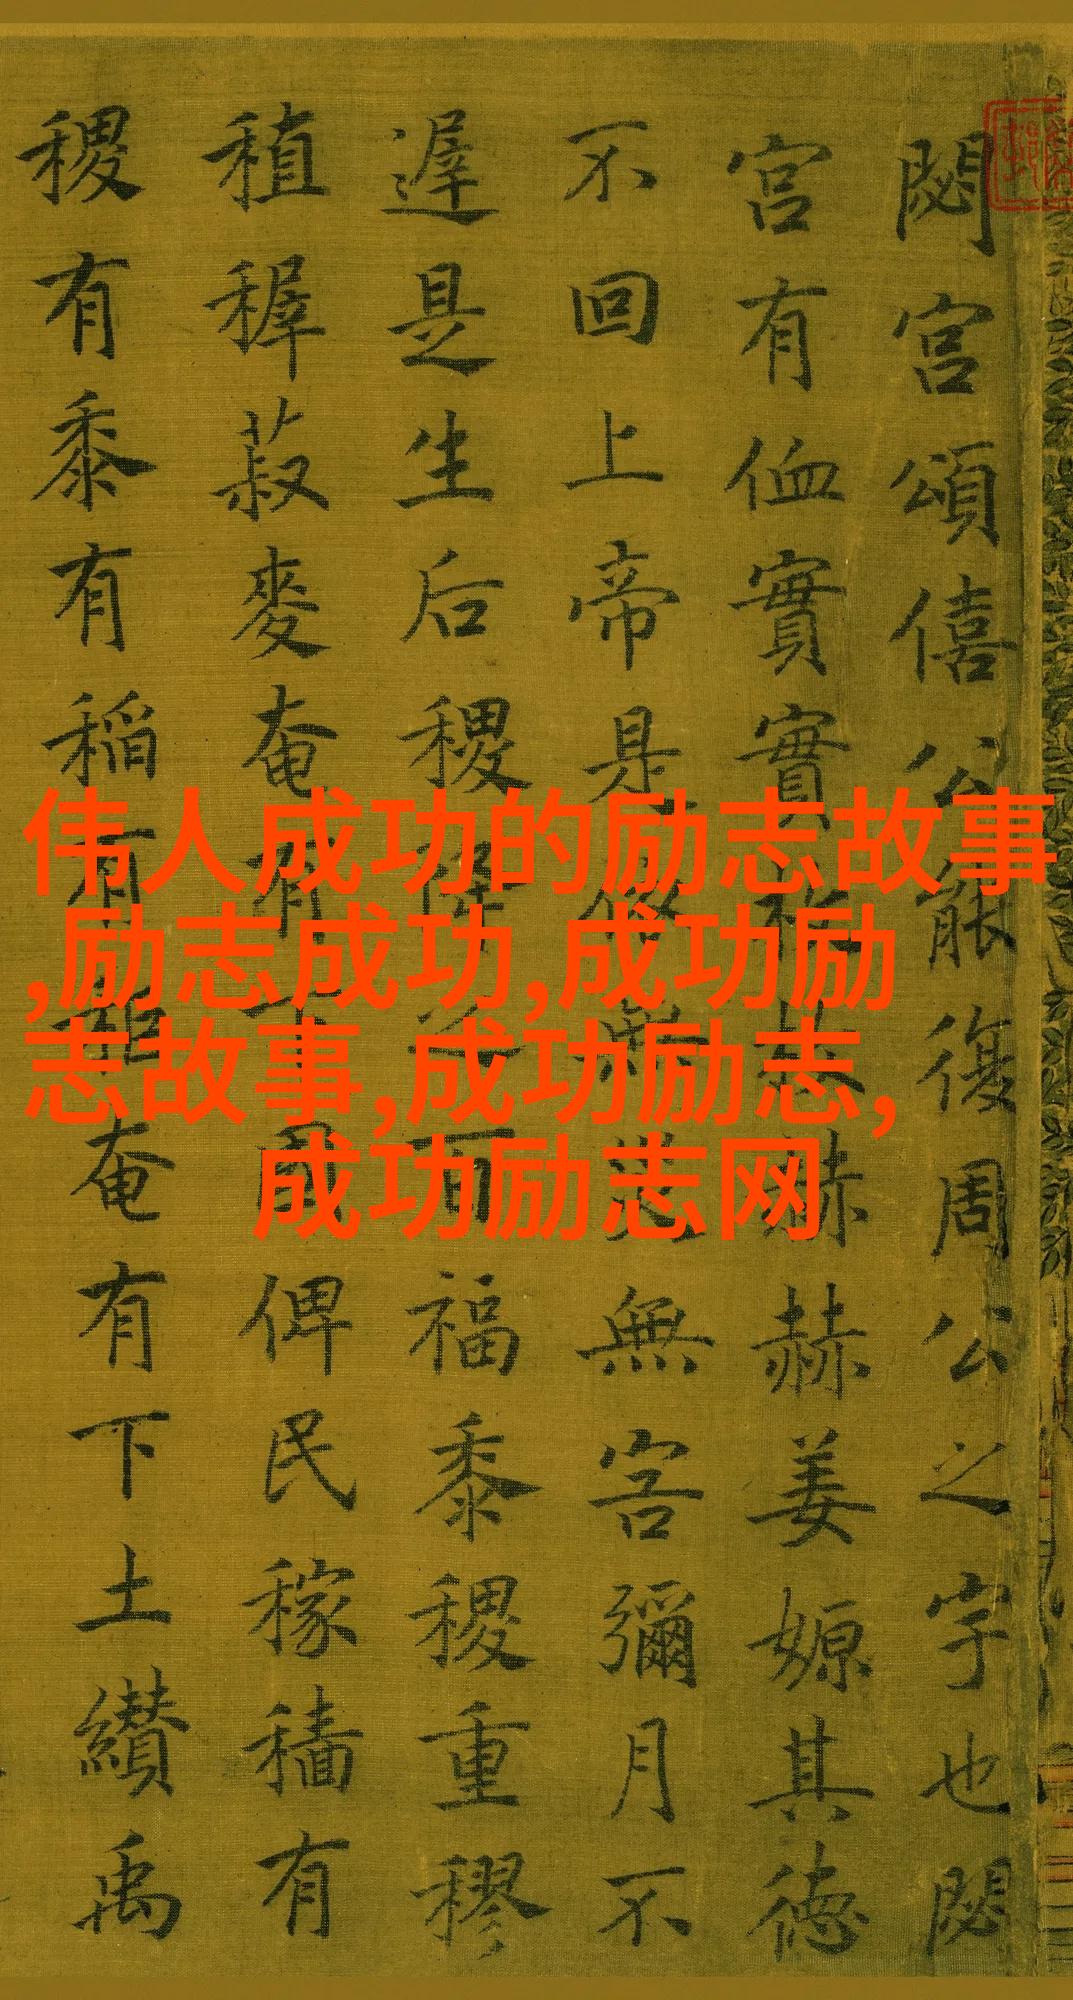 閟宮頌僖公能復周公之宇也閟
宮有侐實實枚枚赫赫姜嫄其德
不回上帝是依無災無害彌月不
遲是生后稷降之百福黍稷重穋
稙稺菽麥奄有下國俾民稼穡有
稷有黍有稻有秬奄有下土纘禹
伟人成功的励志故事
,励志成功,成功励
志故事,成功励志,
成功励志网